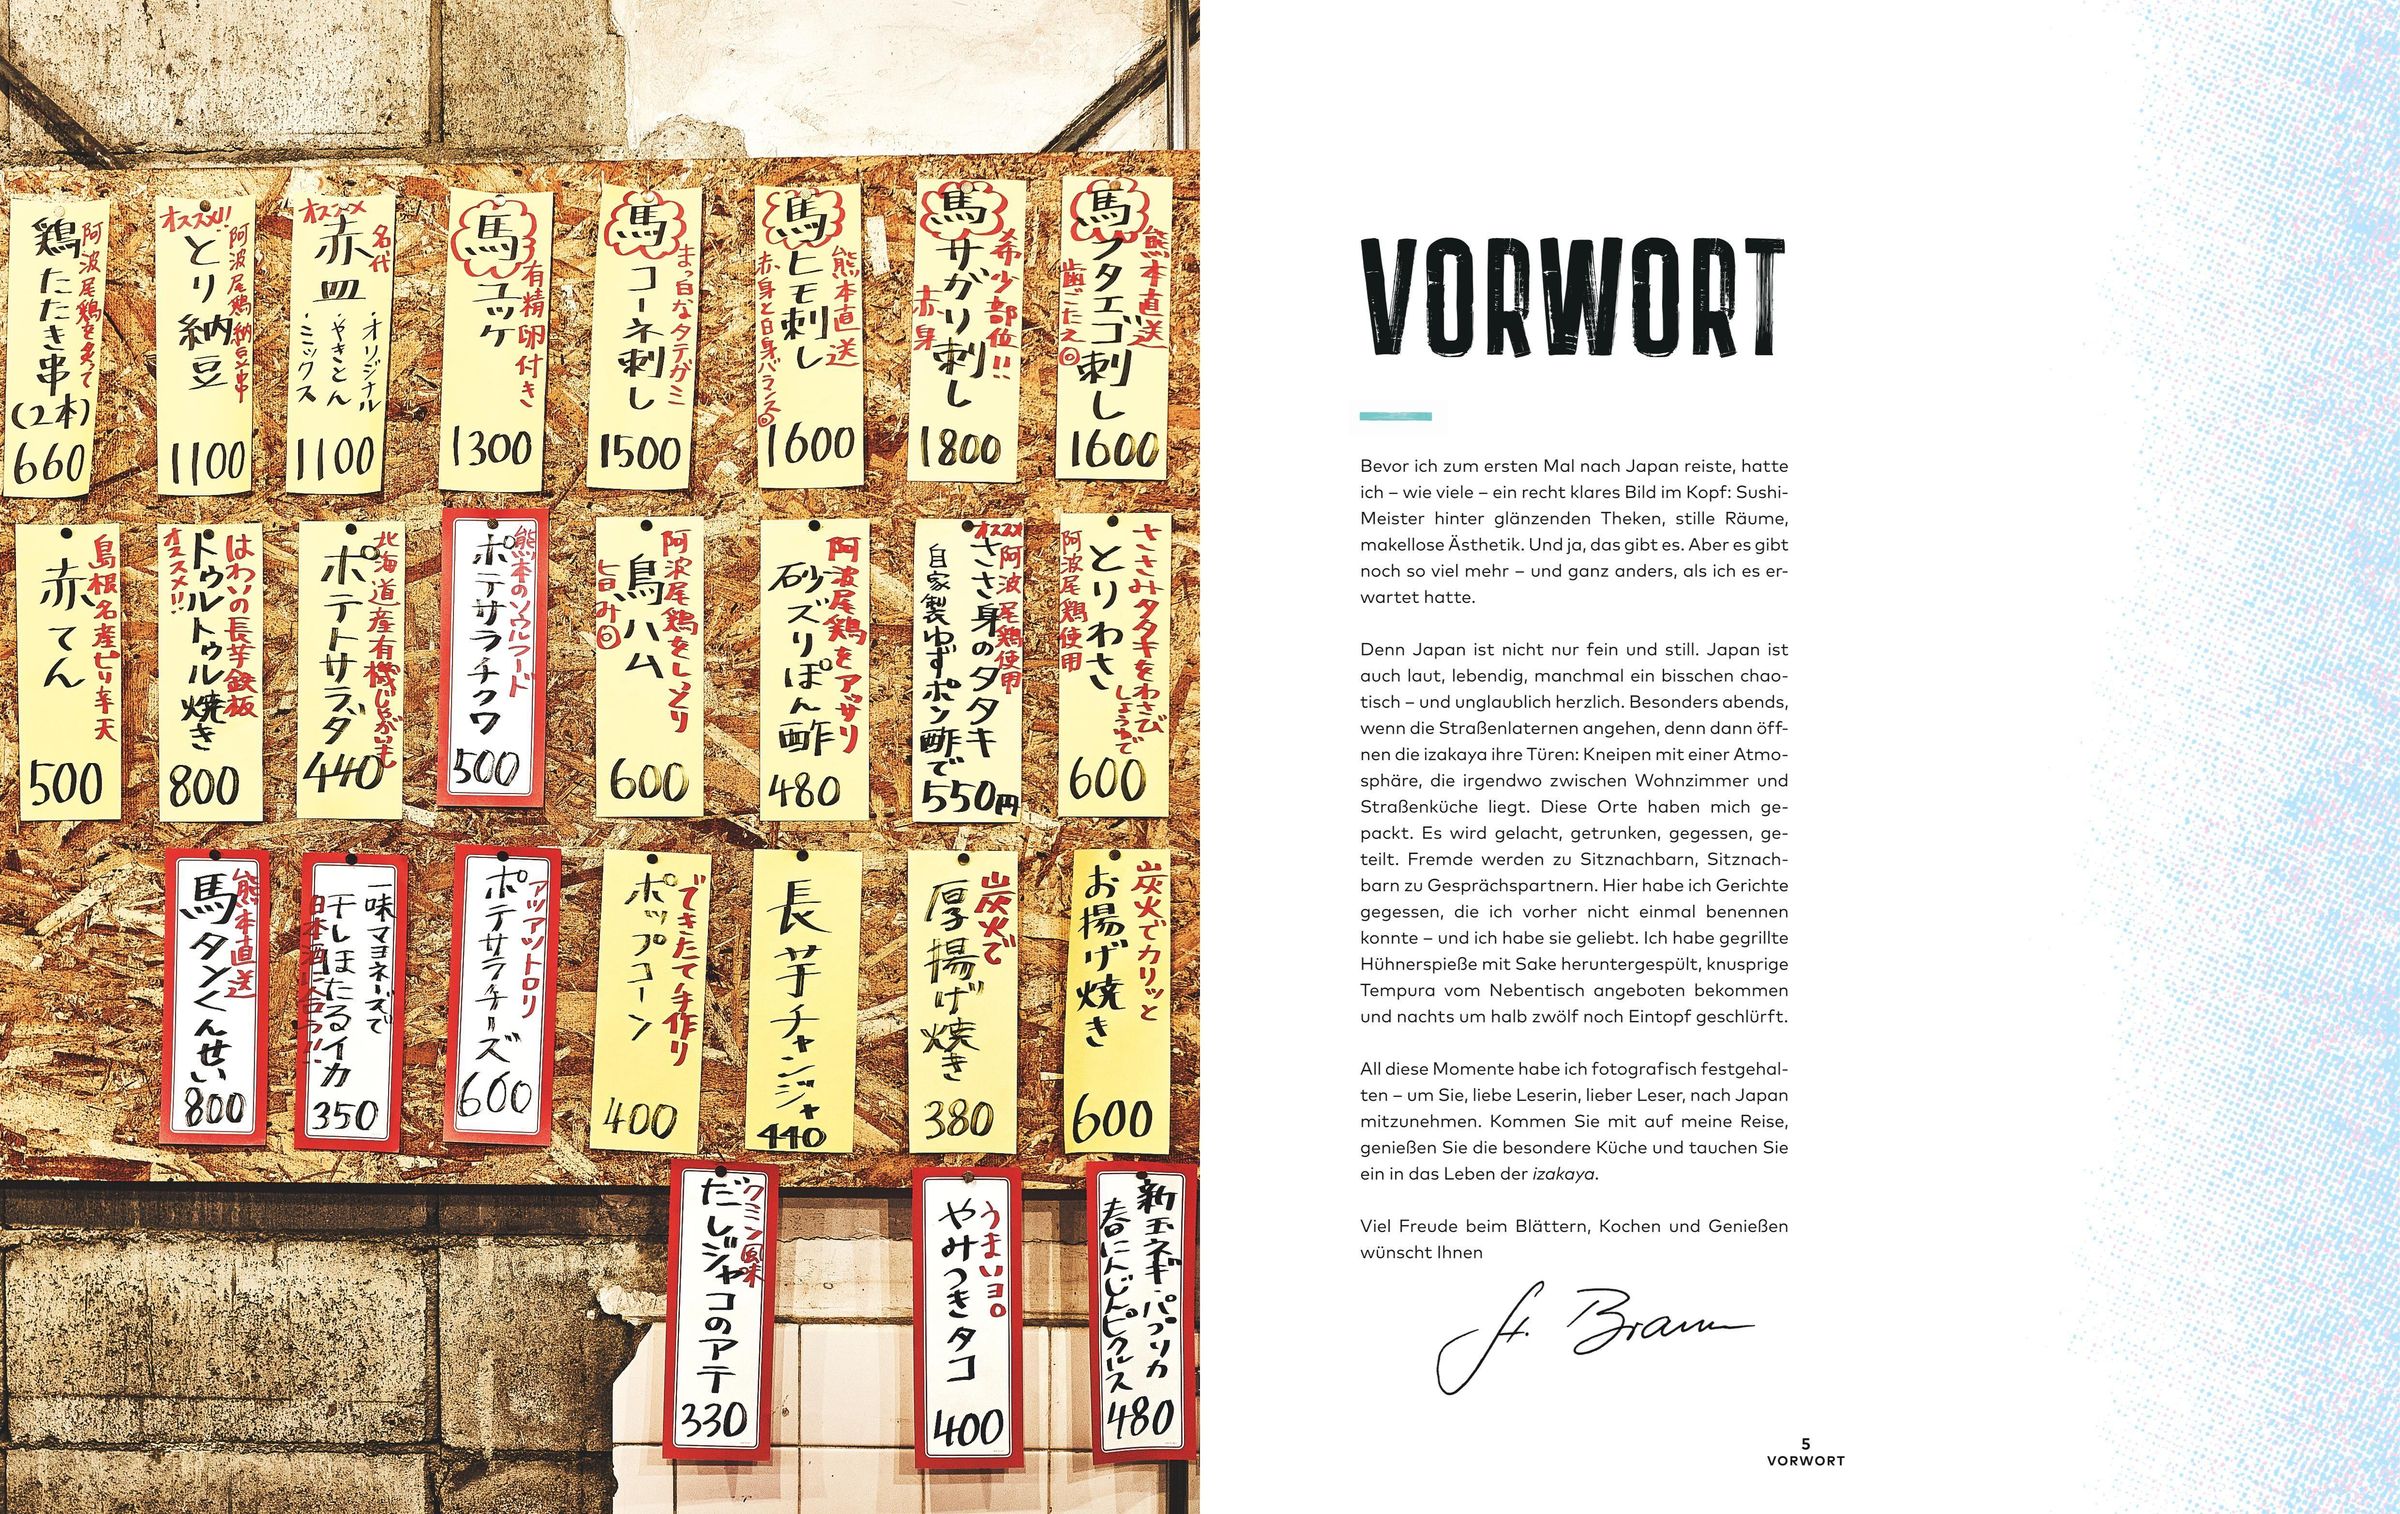 オススメ!!
オススメ
阿波尾鶏を炙って
鶏たたき串
(2本)
660
阿波尾鶏納豆串
とり納豆
1100
名代
赤皿
・オリジナル
・やきとん
・ミックス
1100
馬
ユッケ
有精卵付き
1300
馬
コーネ刺し
まっ白なタテガミ
1500
馬
ヒモ刺し
熊本直送
赤身と白身バランス◎
1600
馬
サガリ刺し
希少部位!!
赤身
1800
馬
フタエゴ刺し
熊本直送
歯ごたえ◎
1600
島根名産ピリ辛天
赤てん
500
はわいの長芋鉄板
トゥルトゥル焼き
オススメ!!
800
北海道産有機じゃがいも
ポテトサラダ
440
熊本のソウルフード
ポテサラチクワ
500
阿波尾鶏をしっとり
鳥ハム
旨み◎
600
阿波尾鶏をアッサリ
砂ズリぽん酢
480
オススメ
阿波尾鶏使用
ささ身のタタキ
自家製ゆずポン酢で
550円
ささみタタキをわさび
しょうゆで
とりわさ
阿波尾鶏使用
600
熊本直送
馬タンくんせい
800
一味マヨネーズで
干しほたるイカ
日本酒に合う!!
350
アツアツトロリ
ポテサラチーズ
600
できたて手作り
ポップコーン
400
長芋チャンジャ
440
炭火で
厚揚げ焼き
380
炭火でカリッと
お揚げ焼き
600
クミン風味
だしジャコのアテ
330
うまいヨロ
やみつきタコ
400
新玉ネギ・パプリカ
春にんじんピクルス
480
VORWORT
Bevor ich zum ersten Mal nach Japan reiste, hatte
ich – wie viele – ein recht klares Bild im Kopf: Sushi-
Meister hinter glänzenden Theken, stille Räume,
makellose Ästhetik. Und ja, das gibt es. Aber es gibt
noch so viel mehr – und ganz anders, als ich es er-
wartet hatte.
Denn Japan ist nicht nur fein und still. Japan ist
auch laut, lebendig, manchmal ein bisschen chao-
tisch – und unglaublich herzlich. Besonders abends,
wenn die Straßenlaternen angehen, denn dann öff-
nen die izakaya ihre Türen: Kneipen mit einer Atmo-
sphäre, die irgendwo zwischen Wohnzimmer und
Straßenküche liegt. Diese Orte haben mich ge-
packt. Es wird gelacht, getrunken, gegessen, ge-
teilt. Fremde werden zu Sitznachbarn, Sitznach-
barn zu Gesprächspartnern. Hier habe ich Gerichte
gegessen, die ich vorher nicht einmal benennen
konnte – und ich habe sie geliebt. Ich habe gegrillte
Hühnerspieße mit Sake heruntergespült, knusprige
Tempura vom Nebentisch angeboten bekommen
und nachts um halb zwölf noch Eintopf geschlürft.
All diese Momente habe ich fotografisch festgehal-
ten – um Sie, liebe Leserin, lieber Leser, nach Japan
mitzunehmen. Kommen Sie mit auf meine Reise,
genießen Sie die besondere Küche und tauchen Sie
ein in das Leben der izakaya.
Viel Freude beim Blättern, Kochen und Genießen
wünscht Ihnen
St. Braun
5
VORWORT